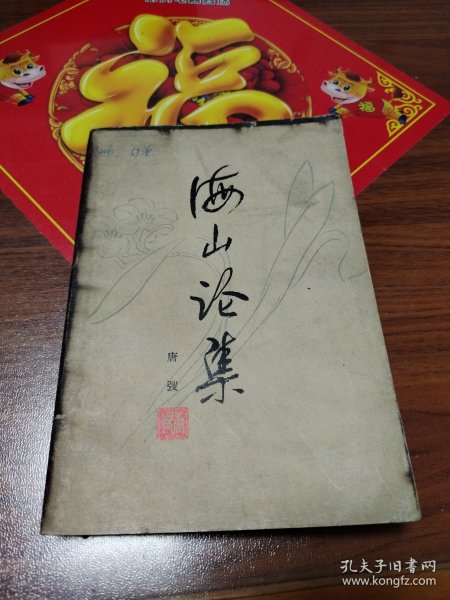 福
海山论集
唐弢
孔夫子旧书网
www.kongfz.com